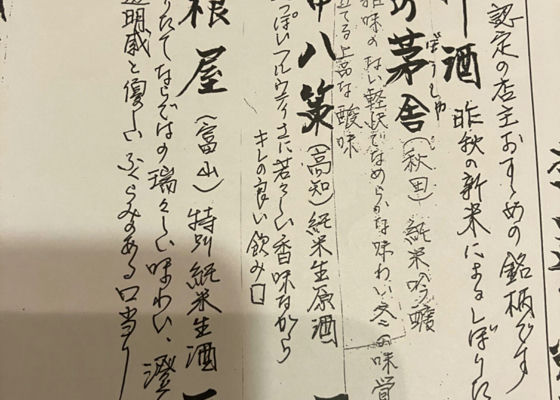 認定の店主おすすめの銘柄です
酒 昨秋の新米によるしぼりた
ぼうしゅ
の茅舎(秋田)純米吟醸
雑味のない軽快でなめらかな味わい冬の味覚
立てる上品な酸味
八策(高知)純米生原酒
っぽいフルウティさに若々しい香味ながら
キレの良い飲み口
根屋(富山)特別純米生酒
りたてならではの瑞々しい味わい、澄
透明感と優しいふくらみのある口当り